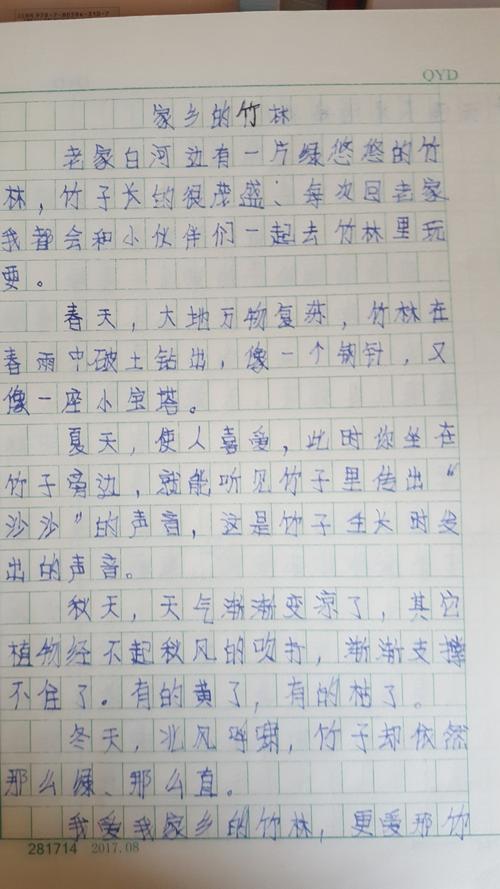 QYD
家乡的竹林
老家白河边有一片绿悠悠的竹
林，竹子长的很茂盛；每次回老家
我都会和小伙伴们一起去竹林里玩
耍。
春天，大地万物复苏，竹林在
春雨中破土钻出，像一个钢针，又
像一座小宝塔。
夏天，使人喜爱，此时你坐在
竹子旁边，就能听见竹子里传出“
沙沙”的声音，这是竹子生长时发
出的声音。
秋天，天气渐渐变凉了，其它
植物经不起秋风的吹打，渐渐支撑
不住了。有的黄了，有的枯了。
冬天，北风呼啸，竹子却依然
那么绿、那么直。
我爱我家乡的竹林，更爱那竹
281714 2017.08